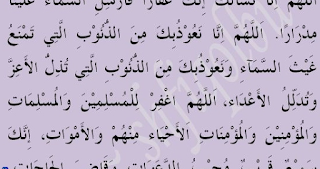 اللَّهُمَّ إِنَّا نَسْأَلُكَ إِنَّكَ غَفَّارًا فَأَرْسِلِ السَّمَاءَ عَلَيْنَا
مِدْرَارًا. اَللَّهُمَّ اِنَّا نَعُوْذُبِكَ مِنَ الذُّنُوْبِ الَّتِي تَمْنَعُ
غَيْثَ السَّمَآءِ وَنَعُوْذُبِكَ مِنَ الذُّنُوْبِ الَّتِي تُذِلُّ الأَعِزَّ
وَتُدَلِّلُ الأَعْدَاءَ، اَللَّهُمَّ اغْفِرْ لِلْمُسْلِمِيْنَ وَالْمُسْلِمَاتِ
وَالْمُؤْمِنِيْنَ وَالْمُؤْمِنَاتِ اَلْأَحْيَاءِ مِنْهُمْ وَالأَمْوَاتِ، إِنَّكَ
سَمِيْعٌ قَرِيْبٌ مُجِيْبُ الدَّعَوَاتِ وَقَاضِيَ الْحَاجَاتِ